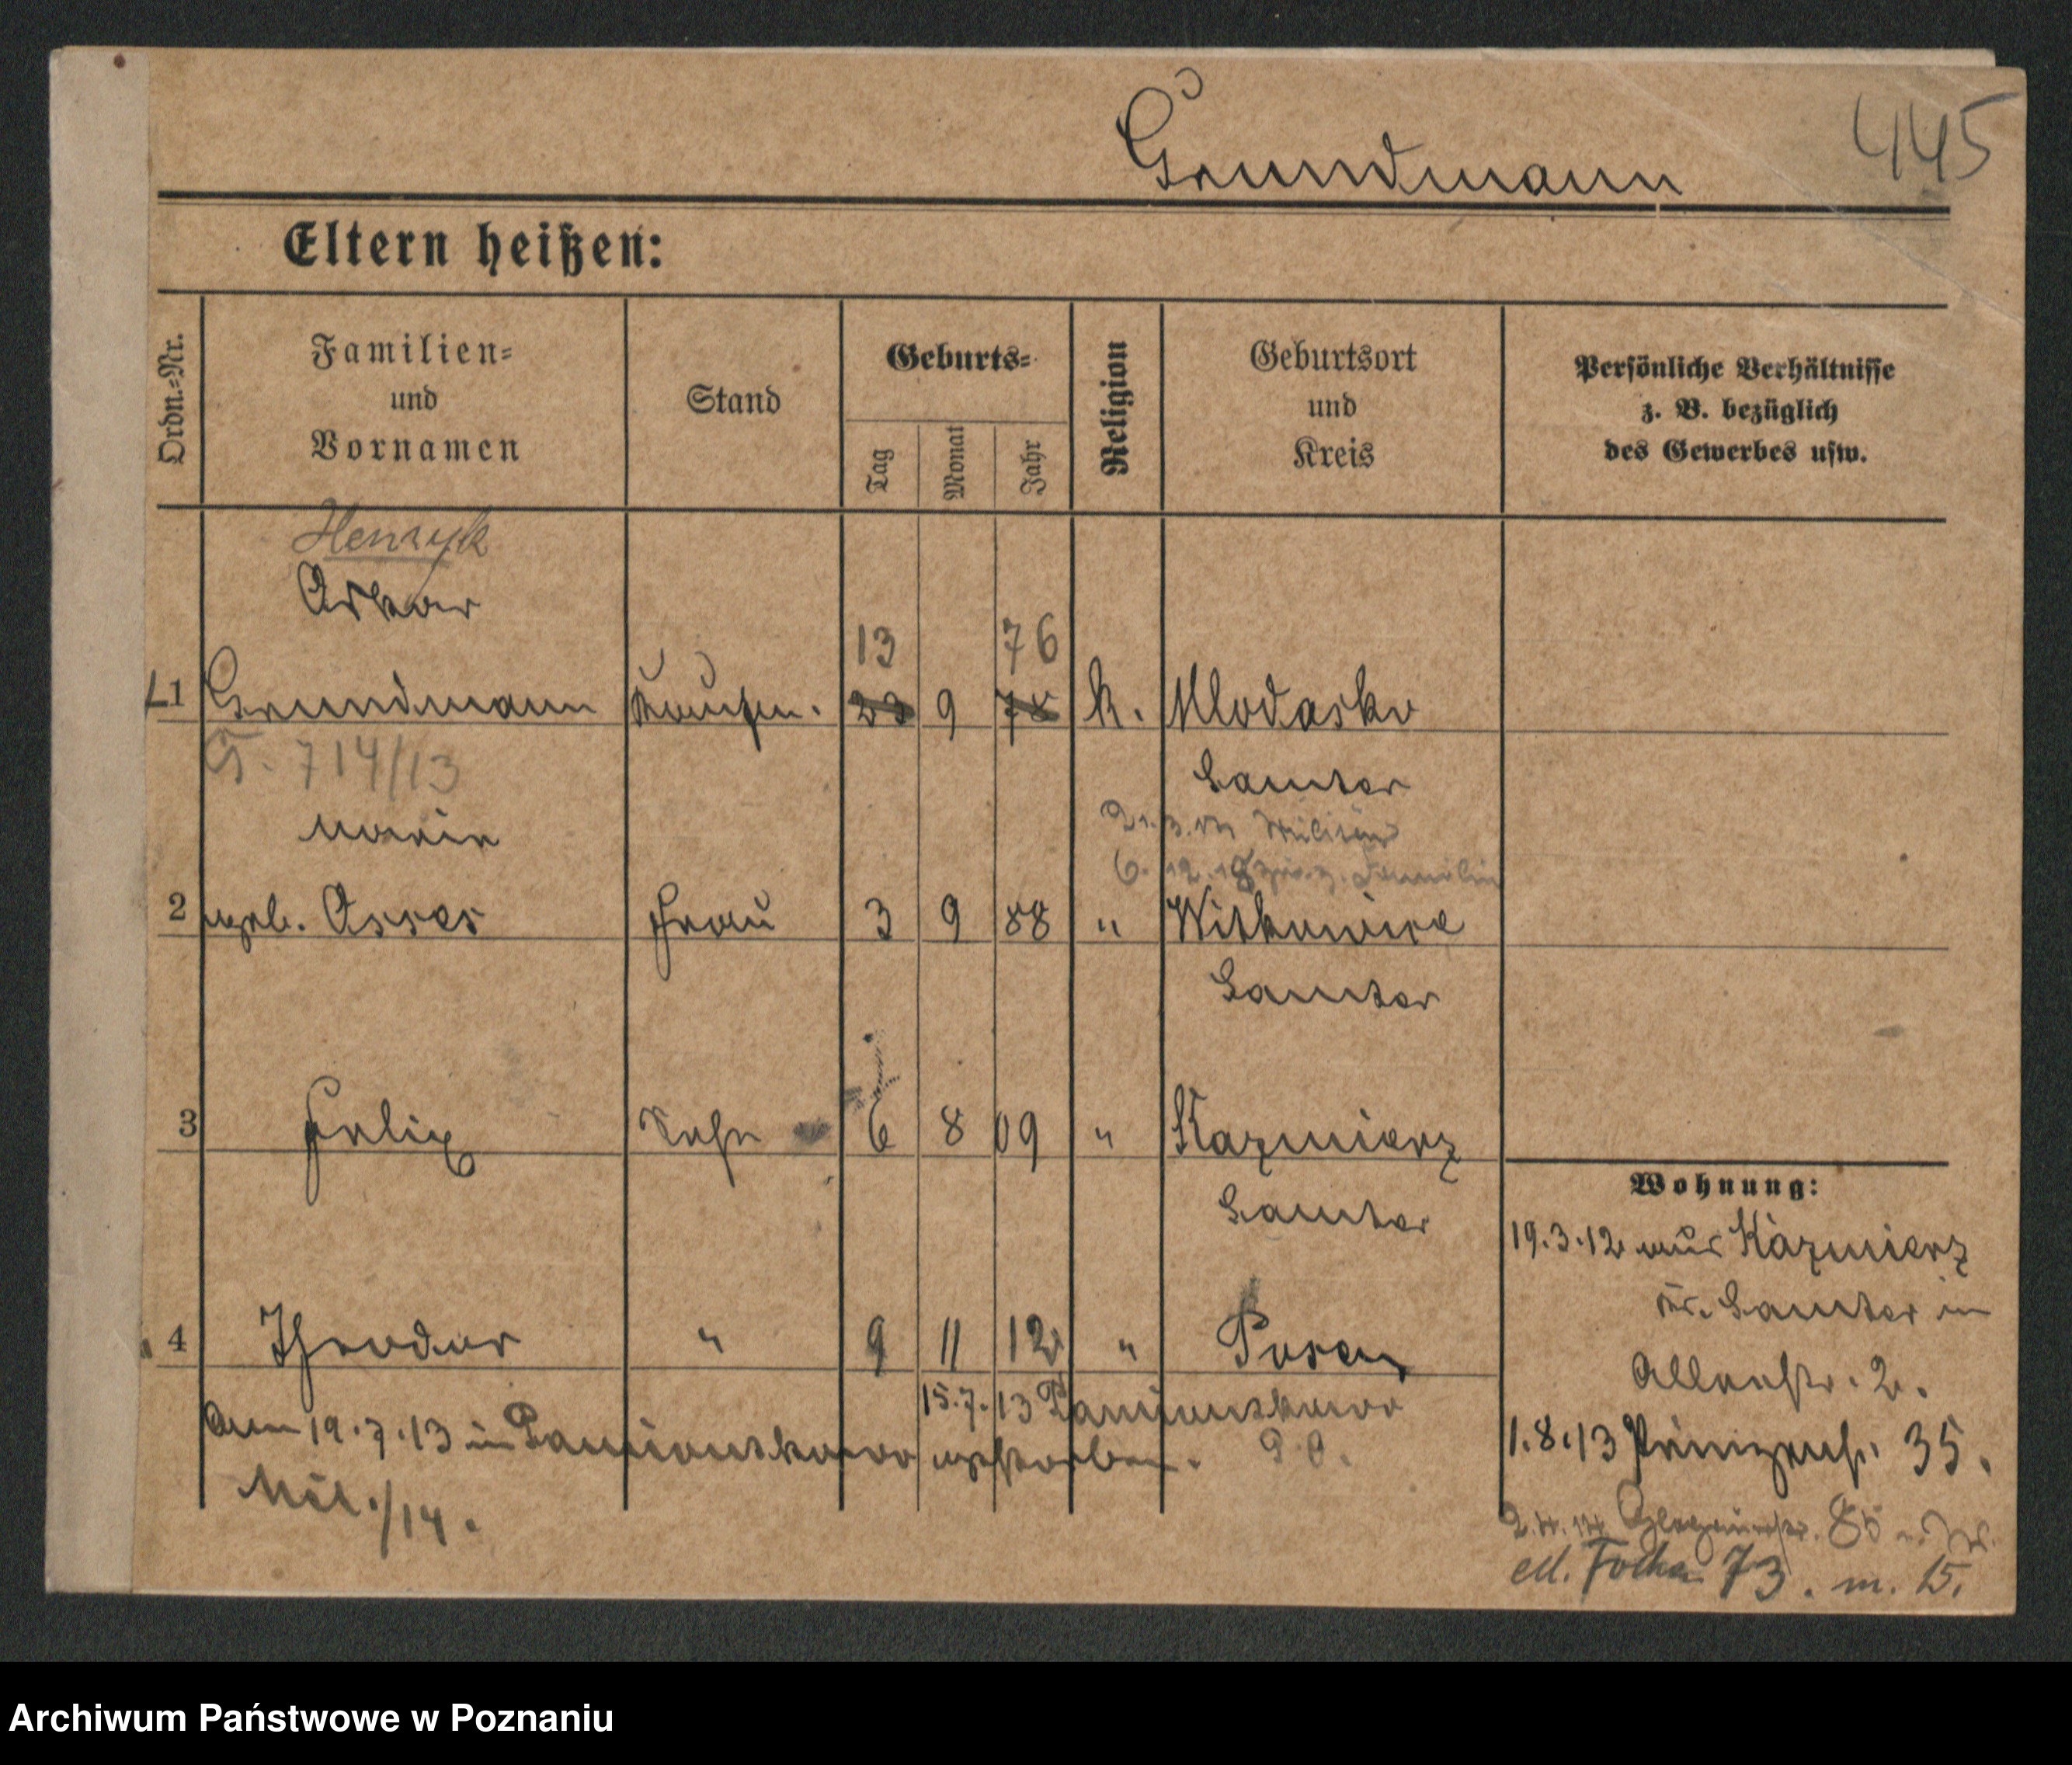 Grundmann
445
Eltern heißen:
Ordn.-Nr.
Familien-
und
Vornamen
Stand
Geburts-
Tag
Monat
Jahr
Religion
Geburtsort
und
Kreis
Persönliche Verhältnisse
z. B. bezüglich
des Gewerbes usw.
Henryk
Oskar
13 76
1 Grundmann Kaufm. 23 9 78 k. Mlodasko
G. 714/13
Samter
21.3. Militär
Maria
6.12.18 z. Familie
2 geb. Asses Frau 3 9 88 " Witkowice
Samter
3 Felix Sohn 6 8 09 " Kazmierz
Samter
Wohnung:
19.3.12 aus Kazmierz
Kr. Samter in
4 Theodor " 9 11 12 " Posen
Allerstr. 2.
15.7.13 Pamiontkowo
Am 19.7.13 in Pamiontkowo gestorben.
1.8.13 Prinzenstr. 35.
Mil./14.
Glogauerstr. 85
Focha 73. m. 15.
Archiwum Państwowe w Poznaniu